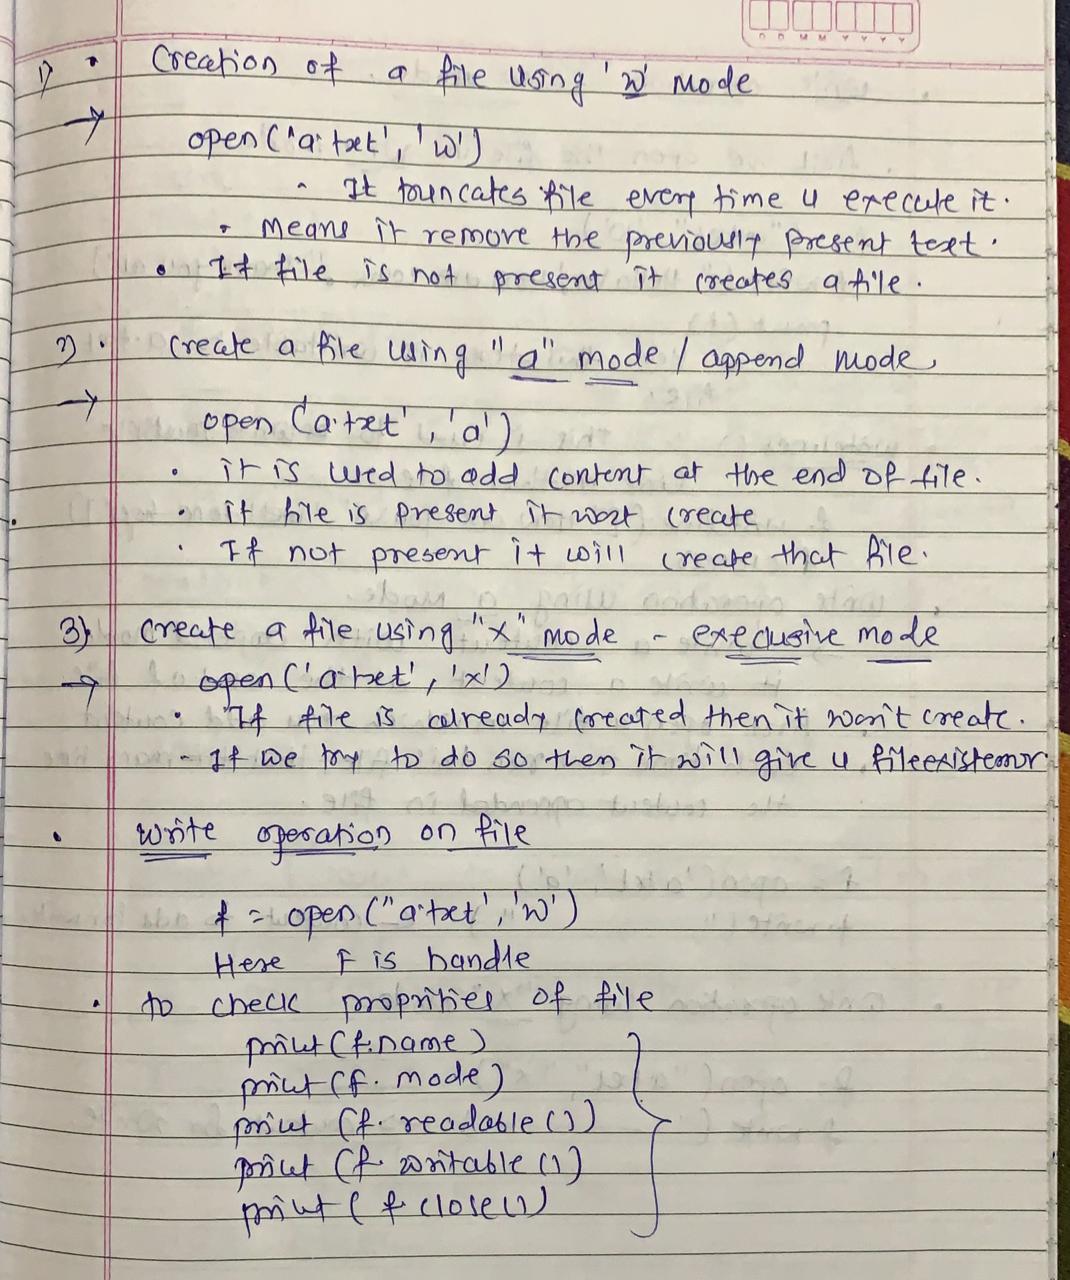 D D M M Y Y Y Y
1) • Creation of a file using 'w' mode
→ open('a.txt', 'w')
• It truncates file every time u execute it.
• Means it remove the previously present text.
• If file is not present it creates a file.
2) • Create a file using "a" mode / append mode
→ open ('a.txt', 'a')
• it is used to add content at the end of file.
• if file is present it wont create
• If not present it will create that file.
3) Create a file using "x" mode - execlusive mode
→ open('a.txt', 'x')
• If file is already created then it won't create.
- If we try to do so then it will give u fileexisterror
• write operation on file
f = open("a.txt', 'w')
Here F is handle
• to check proprities of file
print(f.name)
print(f. mode)
print (f. readable ())
print (f. writable ())
print ( f close()